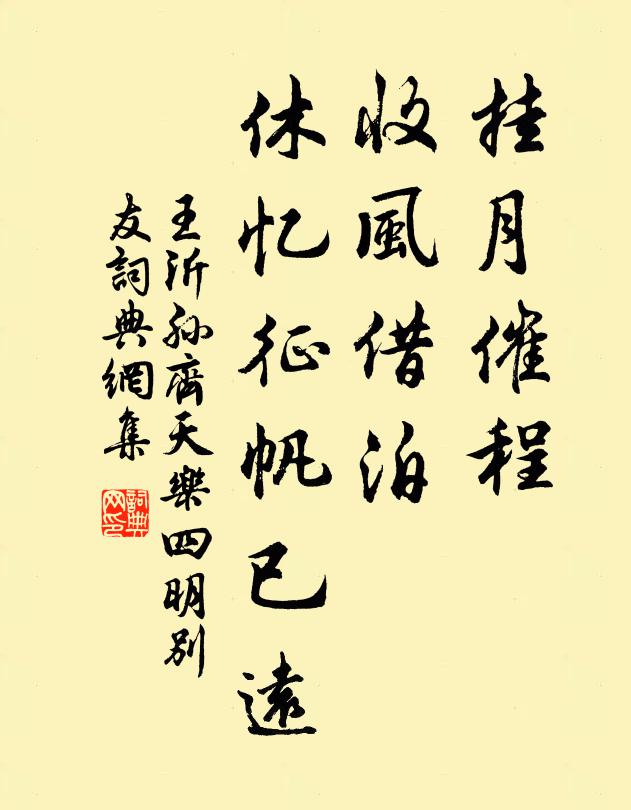 挂月催程
收風借泊
休忆征帆已遠
王沂孙齊天樂四明别
友詞典網集
詞典
网印